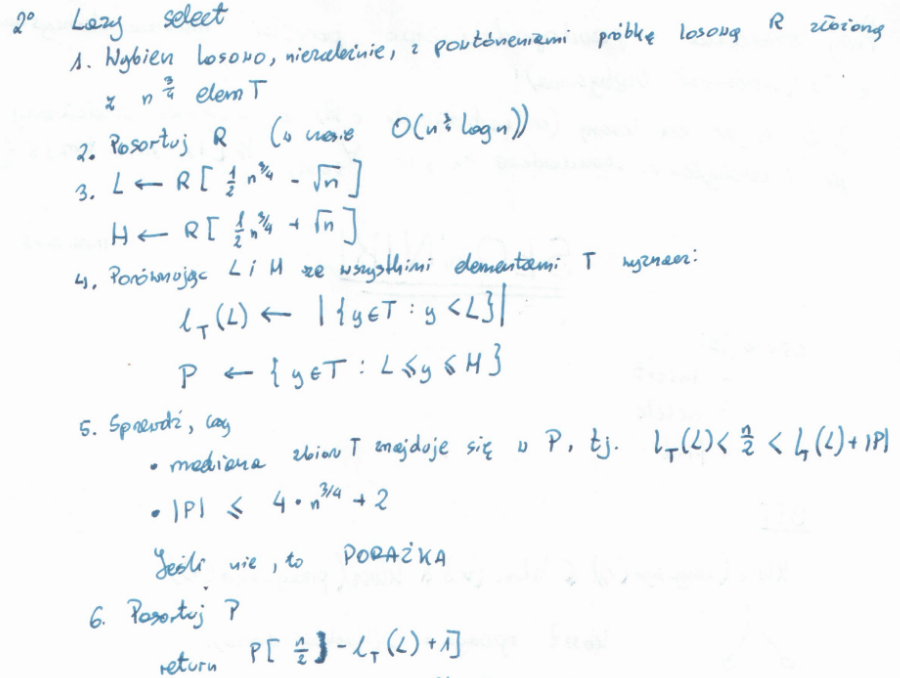 2° Lazy select
1. Wybierz losowo, niezależnie, z powtórzeniami próbkę losową R złożoną
z n^{3/4} elem T
2. Posortuj R (w czasie O(n^{3/4} log n))
3. L ← R[ 1/2 n^{3/4} - √n ]
H ← R[ 1/2 n^{3/4} + √n ]
4. Porównując L i H ze wszystkimi elementami T wyznacz:
l_T(L) ← |{y∈T : y < L}|
P ← {y∈T : L ≤ y ≤ H}
5. Sprawdź, czy
• mediana zbioru T znajduje się w P, tj. l_T(L) < n/2 < l_T(L) + |P|
• |P| ≤ 4 · n^{3/4} + 2
Jeśli nie, to PORAŻKA
6. Posortuj P
return P[ n/2 - l_T(L) + 1]